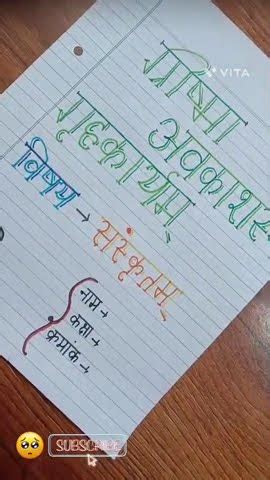 ग्रीष्मा
VITA
अवकाशस्
गृहकार्यम्
विषय → संस्कृतम्
नाम →
कक्षा →
क्रमांक →
SUBSCRIBE